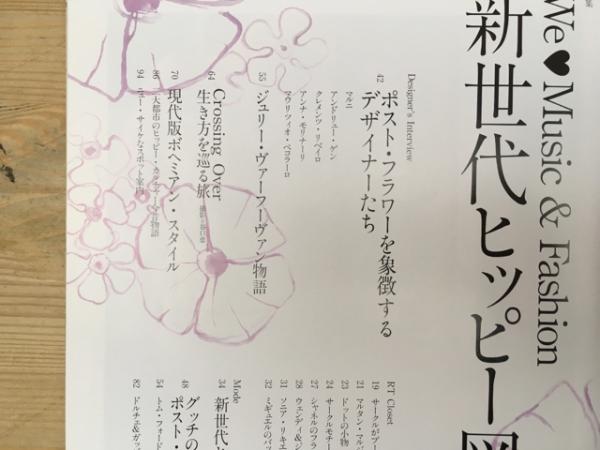 We♥Music & Fashion
新世代ヒッピー図
Designer's Interview
42 ポスト・フラワーを象徴する
デザイナーたち
マルニ
アンドリュー・ゲン
クレメンツ・リベイロ
アンナ・モリナーリ
マウリツィオ・ペコラーロ
55 ジュリー・ヴァーフーヴァン物語
64 Crossing Over
生き方を巡る旅
70 現代版ボヘミアン・スタイル
86 大都市のヒッピー・カルチャー今昔物語
94 ニュー・サイケなスポット案内
RT Closet
19 サークルがプー
21 マルタン・マルジ
23 ドットの小物
24 サークルモチー
27 シャネルのフラ
28 ウェンディ&ジ
31 ソニア・リキエ
32 ミギュエルのバッ
Mode
34 新世代ヒ
48 グッチの
ポスト・
54 トム・フォード
82 ドルチェ&ガッ